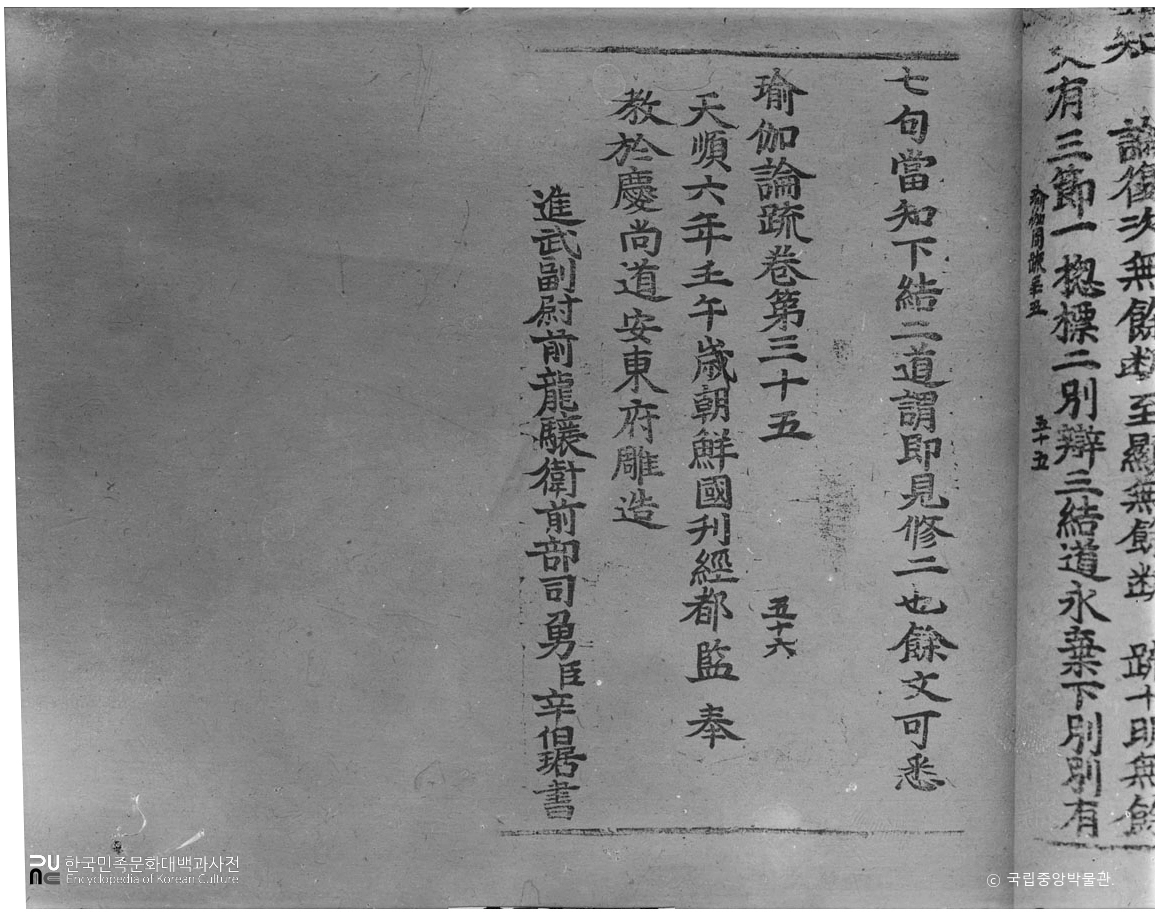 論復次無餘断至顯無餘断 疏十明無餘
又有三節一揔標二別辯三結道永棄下別別有
五十五
七句當知下結二道謂即見修二也餘文可悉
瑜伽論疏卷第三十五
五十六
天順六年壬午歲朝鮮國刊經都監奉
教於慶尚道安東府雕造
進武副尉前龍驤衛前部司勇臣辛伯琚書
한국민족문화대백과사전
Encyclopedia of Korean Culture
© 국립중앙박물관.